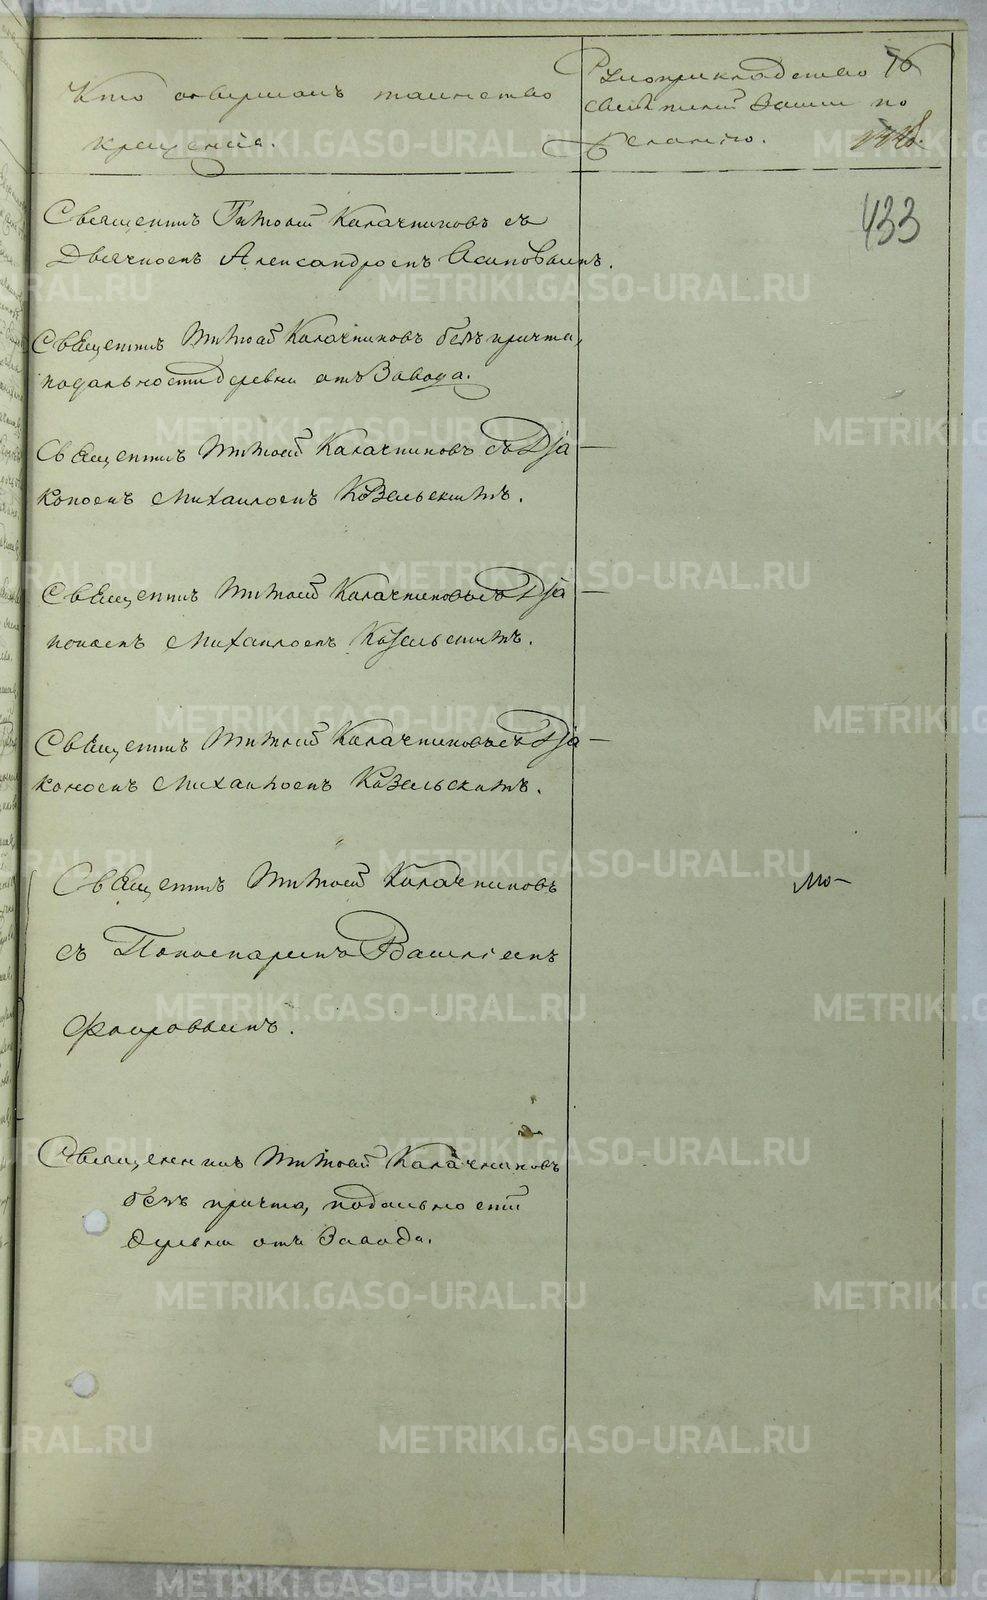 Кто совершалъ таинство
крещенія.
Рукоприкладство
свидѣтелей записи по
желанію.
76
433
Священникъ Тимоѳей Калачниковъ съ
Дьячкомъ Александромъ Осиповымъ.
Священникъ Тимоѳей Калачниковъ безъ причта,
подальности деревни отъ Завода.
Священникъ Тимоѳей Калачниковъ съ Діа-
кономъ Михаиломъ Козельскимъ.
Священникъ Тимоѳей Калачниковъ съ Діа-
кономъ Михаиломъ Козельскимъ.
Священникъ Тимоѳей Калачниковъ съ Діа-
кономъ Михаиломъ Козельскимъ.
Священникъ Тимоѳей Калачниковъ
съ Пономаремъ Василіемъ
Священникъ Тимоѳей Калачниковъ
безъ причта, подальности
деревни отъ Завода.
METRIKI.GASO-URAL.RU